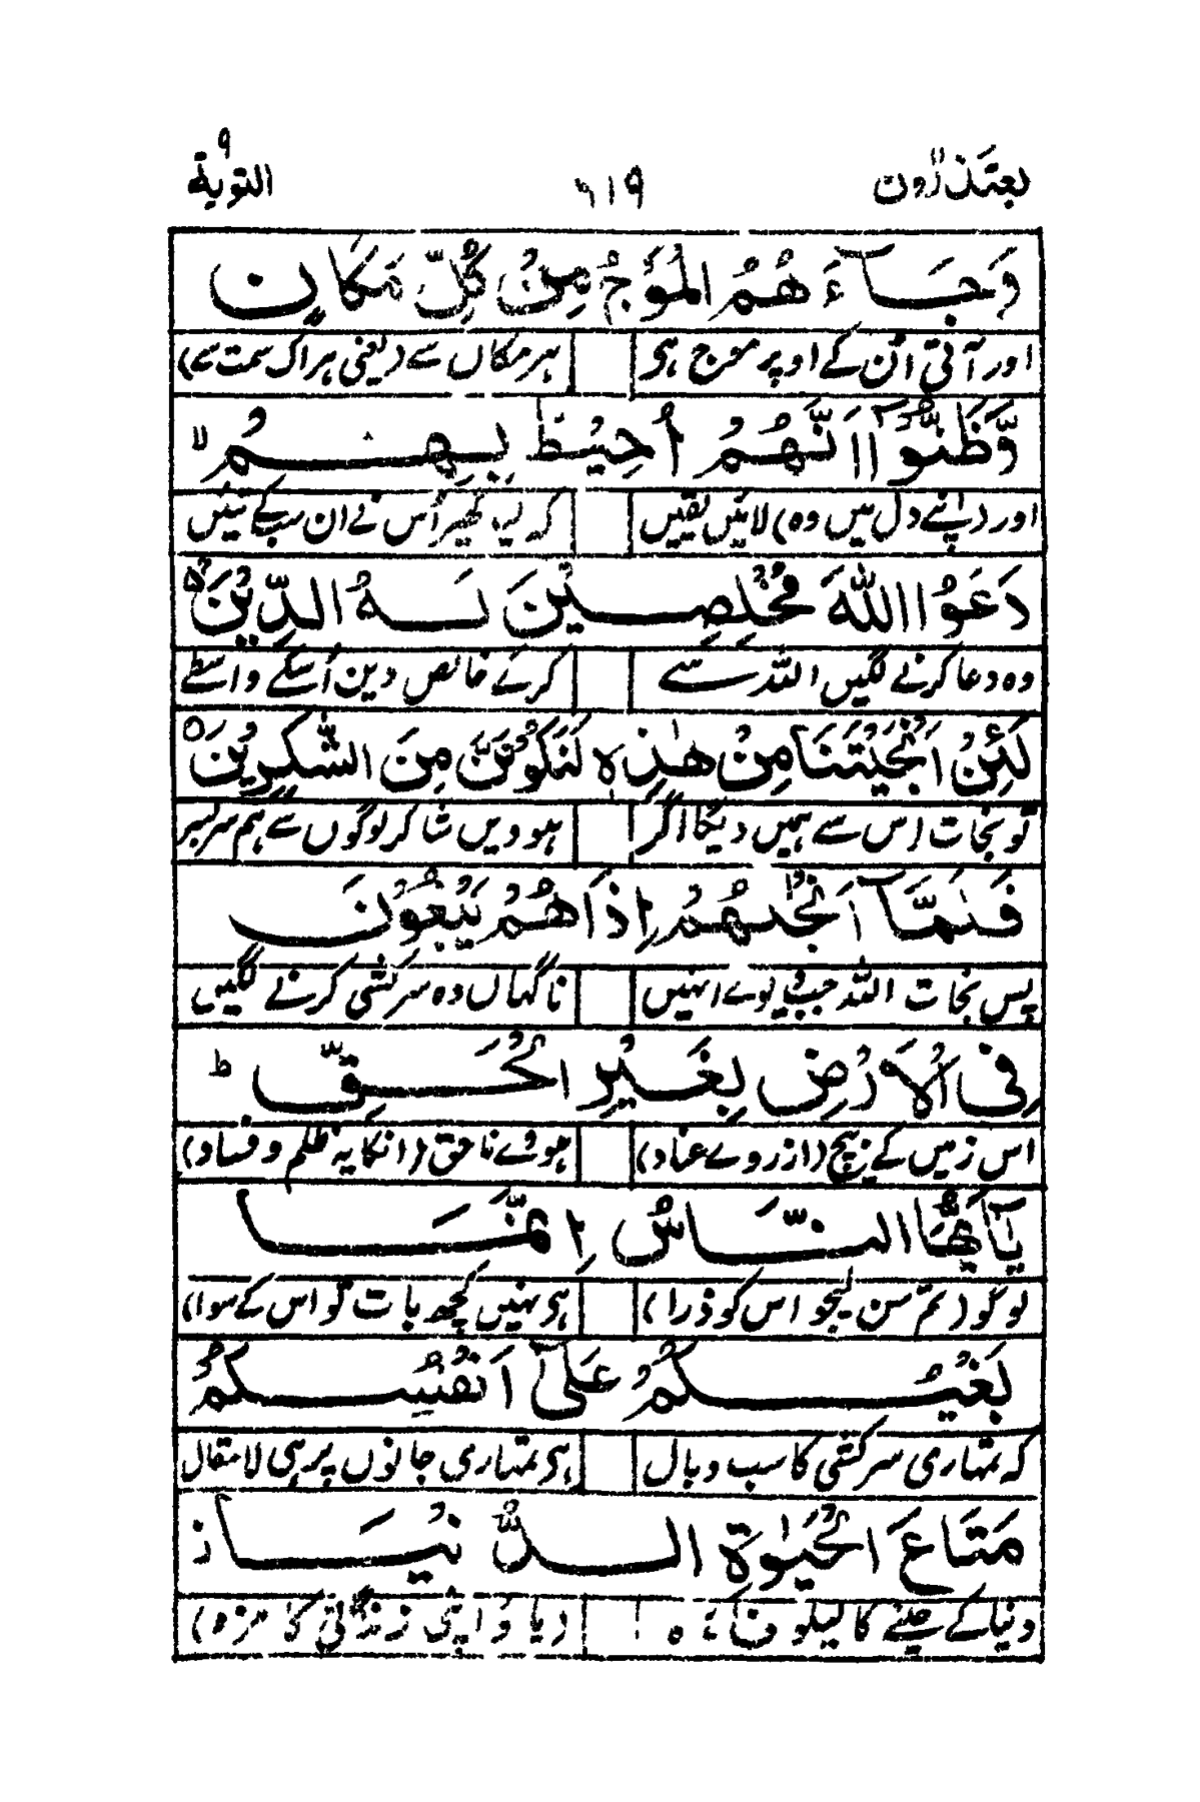 یعتذرون ۱۱ ۶۱۹ التوبة ۹
وَجَآءَهُمُ الْمَوْجُ مِنْ كُلِّ مَكَانٍ
اور آئی اُن کے اوپر موج ہی ہر مکاں سے (یعنی ہر اک سمت سے)
وَّظَنُّوْٓا اَنَّهُمْ اُحِيْطَ بِهِمْ ۙ
اور (اپنے دل میں وہ) لائیں یقیں کہ لیا گھیر اُس نے ان سب کے تئیں
دَعَوُا اللّٰهَ مُخْلِصِيْنَ لَهُ الدِّيْنَ ۵
وہ دعا کرنے لگیں اللہ سے کرکے خالص دین اُسکے واسطے
لَئِنْ اَنْجَيْتَنَا مِنْ هٰذِهٖ لَنَكُوْنَنَّ مِنَ الشّٰكِرِيْنَ ○
تو نجات اِس سے ہمیں دیگا اگر ہوویں شاکر لوگوں سے ہم سربسر
فَلَمَّآ اَنْجٰىهُمْ اِذَا هُمْ يَبْغُوْنَ
پس نجات اللہ جب دیوے انہیں ناگہاں وہ سرکشی کرنے لگیں
فِى الْاَرْضِ بِغَيْرِ الْحَقِّ ؕ
اس زمیں کے بیچ (از روے عناد) ہوئے ناحق (انکا یہ ظلم و فساد)
يٰٓاَيُّهَا النَّاسُ اِنَّمَا
لوگو (تم سن لیجو اس کو ذرا) ہی نہیں کچھ بات تو اس کے سوا)
بَغْيُكُمْ عَلٰٓى اَنْفُسِكُمْ
کہ تمہاری سرکشی کا سب وبال ہی تمہاری جانوں پر ہی لامقال
مَتَاعَ الْحَيٰوةِ الدُّنْيَا ز
دنیا کے جینے کا لیلو فائدہ (یا واپنی زندگانی کا مزہ)